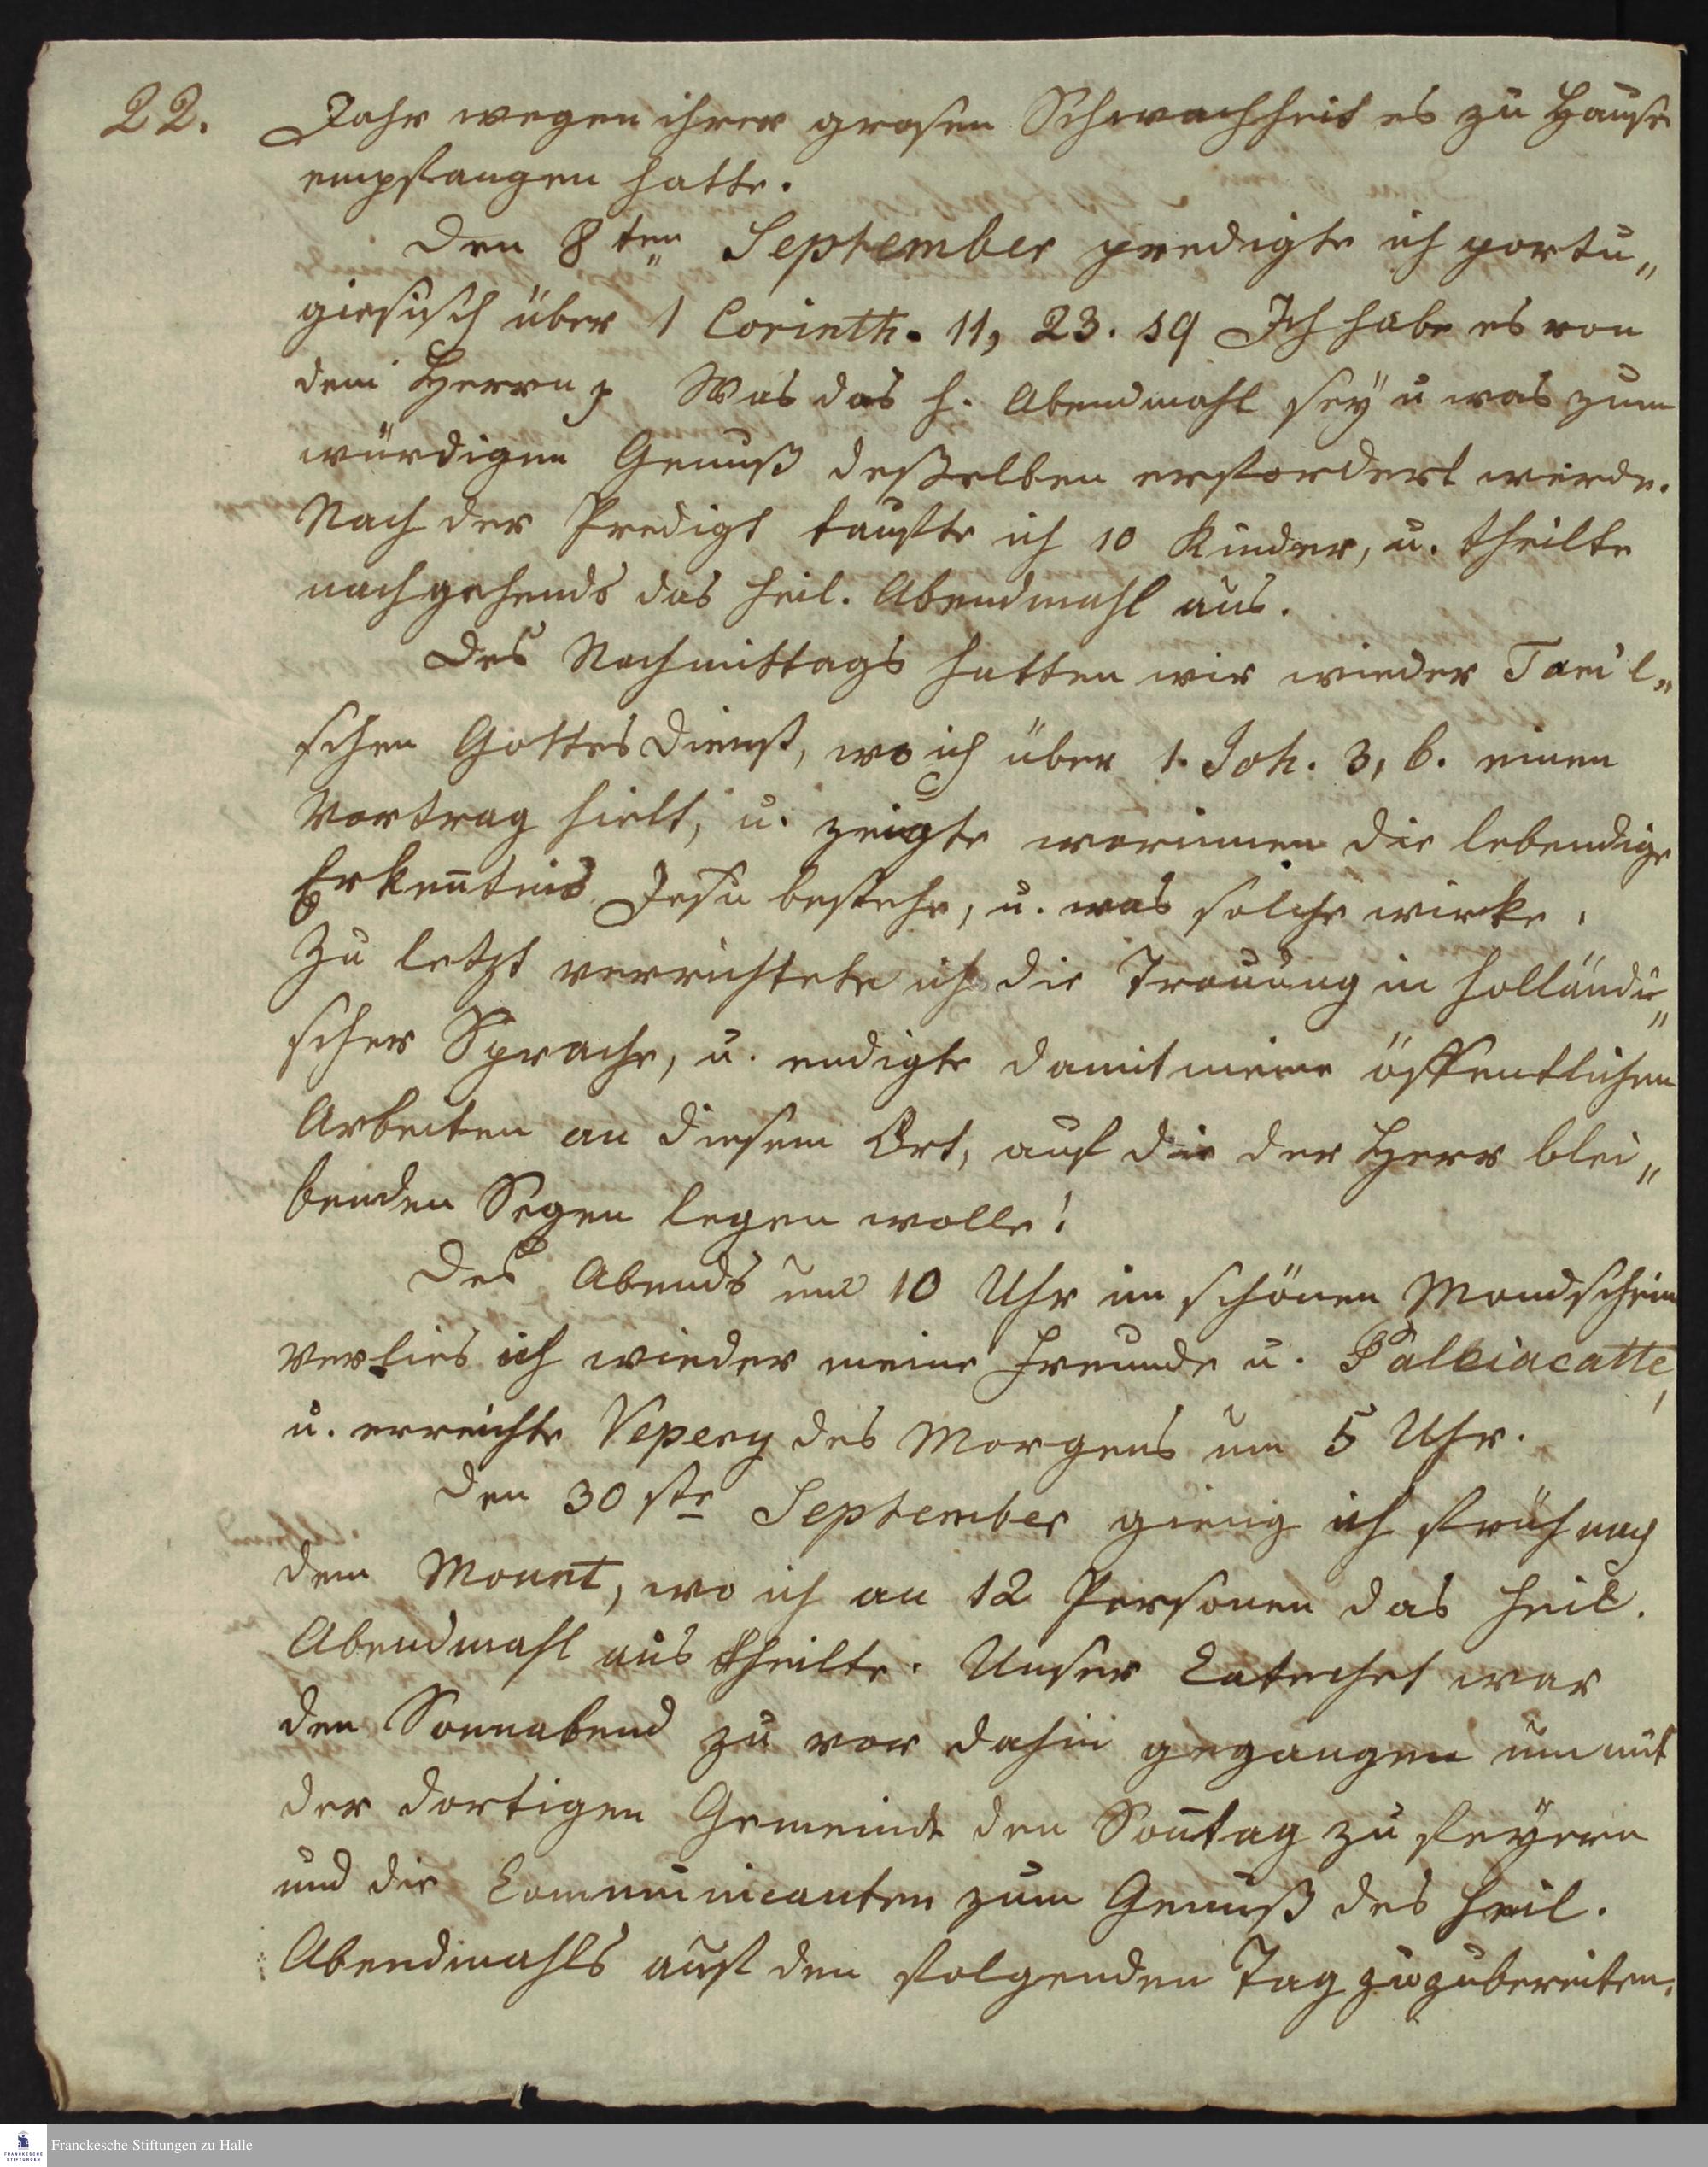 22. Jahr wegen ihrer grosen Schwachheit es zu Hause
empfangen hatte.
Den 8ten September predigte ich portu„
giesisch über 1 Corinth. 11, 23. sq Ich habe es von
dem Herrn p Was das h. Abendmahl seÿ u was zum
würdigen Genuß deßelben erfordert werde.
Nach der Predigt taufte ich 10 Kinder, u. theilte
nachgehends das heil. Abendmahl aus.
Des Nachmittags hatten wir wieder
schen Gottesdienst, wo ich über 1. Joh. 3, 6. einen
Vortrag hielt, u. zeigte worinnen die lebendige
Erken̄tnis Jesu bestehe, u. was solche wirke.
Zu letzt verrichtete ich die Trauung in holländi„
scher Sprache, u. endigte damit meine öffentlichen
Arbeiten an diesem Ort, auf die der Herr blei„
benden Segen legen wolle!
Des Abends um 10 Uhr im schönen Mondschein
verlies ich wieder meine Freunde u. Palliacatte,
u. erreichte Vepery des Morgens um 5 Uhr.
Den 30ste September gieng ich früh nach
dem Mount, wo ich an 12 Personen das heil.
Abendmahl aus theilte. Unser Catechet war
den Sonnabend zu vor dahin gegangen um mit
der dortigen Gemeinde den Son̄tag zu feÿern
und die Communicanten zum Genuß des heil.
Abendmahls auf den folgenden Tag zuzubereiten.
Franckesche Stiftungen zu Halle